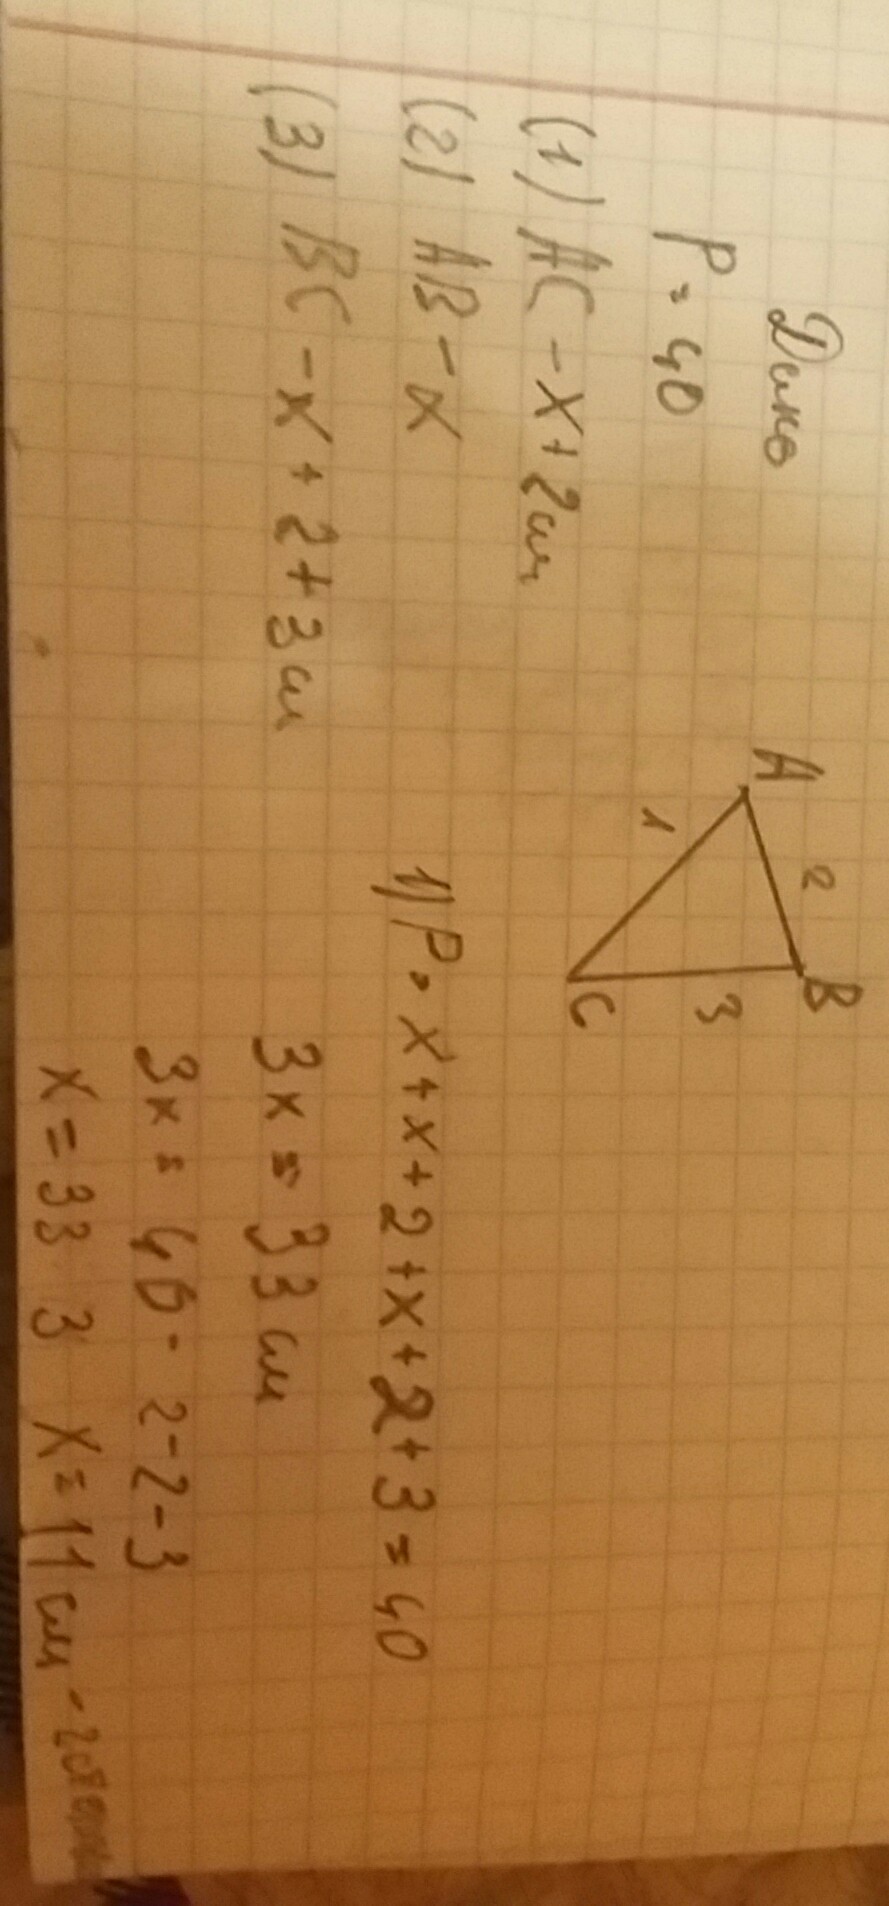 Дано
P = 40
(1) AC - x + 2см
(2) AB - x
(3) BC - x + 2 + 3 см
A
2
B
1
3
C
1) P = x + x + 2 + x + 2 + 3 = 40
3x = 33 см
3x = 40 - 2 - 2 - 3
x = 33 3 x = 11 см -